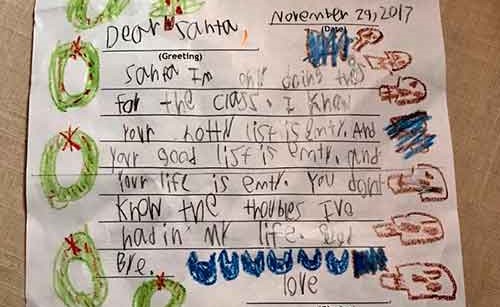 November 29, 2017
(Date)
Dear Santa,
(Greeting)
Santa Im only doing this
for the class. I know
your notty list is emty. And
your good list is emty. And
Your life is emty. You dont
know the troubles Ive
had in my life. Good
Bye.
love